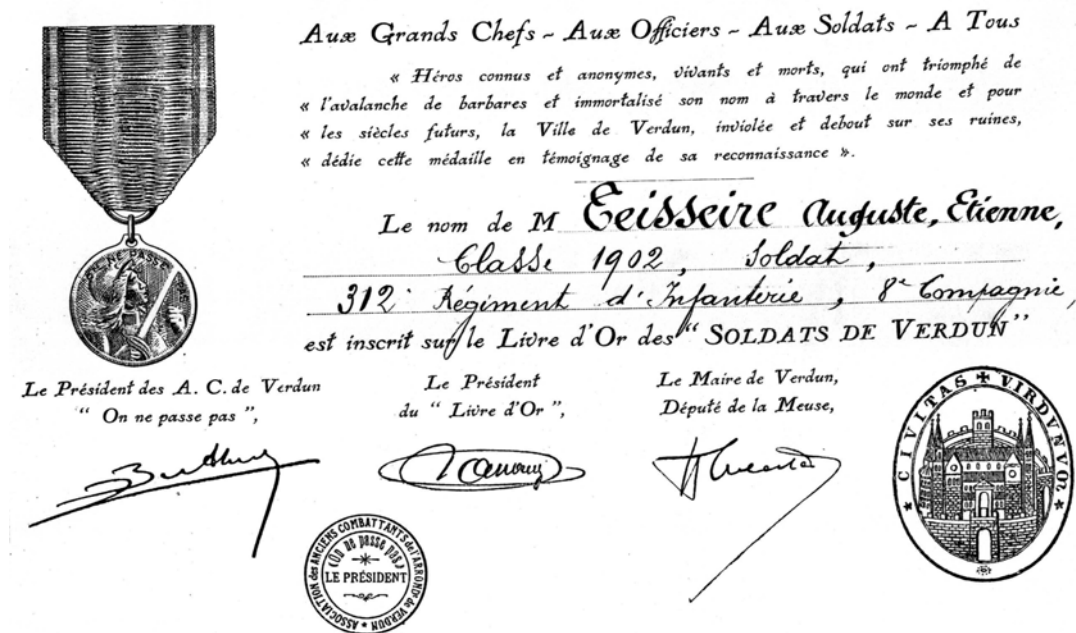 Aux Grands Chefs ~ Aux Officiers ~ Aux Soldats ~ A Tous
« Héros connus et anonymes, vivants et morts, qui ont triomphé de
« l'avalanche de barbares et immortalisé son nom à travers le monde et pour
« les siècles futurs, la Ville de Verdun, inviolée et debout sur ses ruines,
« dédie cette médaille en témoignage de sa reconnaissance ».
Le nom de M Teisseire Auguste, Etienne,
Classe 1902, Soldat,
312e Régiment d'Infanterie, 8e Compagnie,
est inscrit sur le Livre d'Or des "SOLDATS DE VERDUN"
ON NE PASSE PAS
Le Président des A. C. de Verdun
"On ne passe pas",
Le Président
du "Livre d'Or",
Le Maire de Verdun,
Député de la Meuse,
CIVITAS VIRDVNVM
ASSOCIATION des ANCIENS COMBATTANTS de l'ARRONDt de VERDUN
(On ne passe pas)
LE PRÉSIDENT